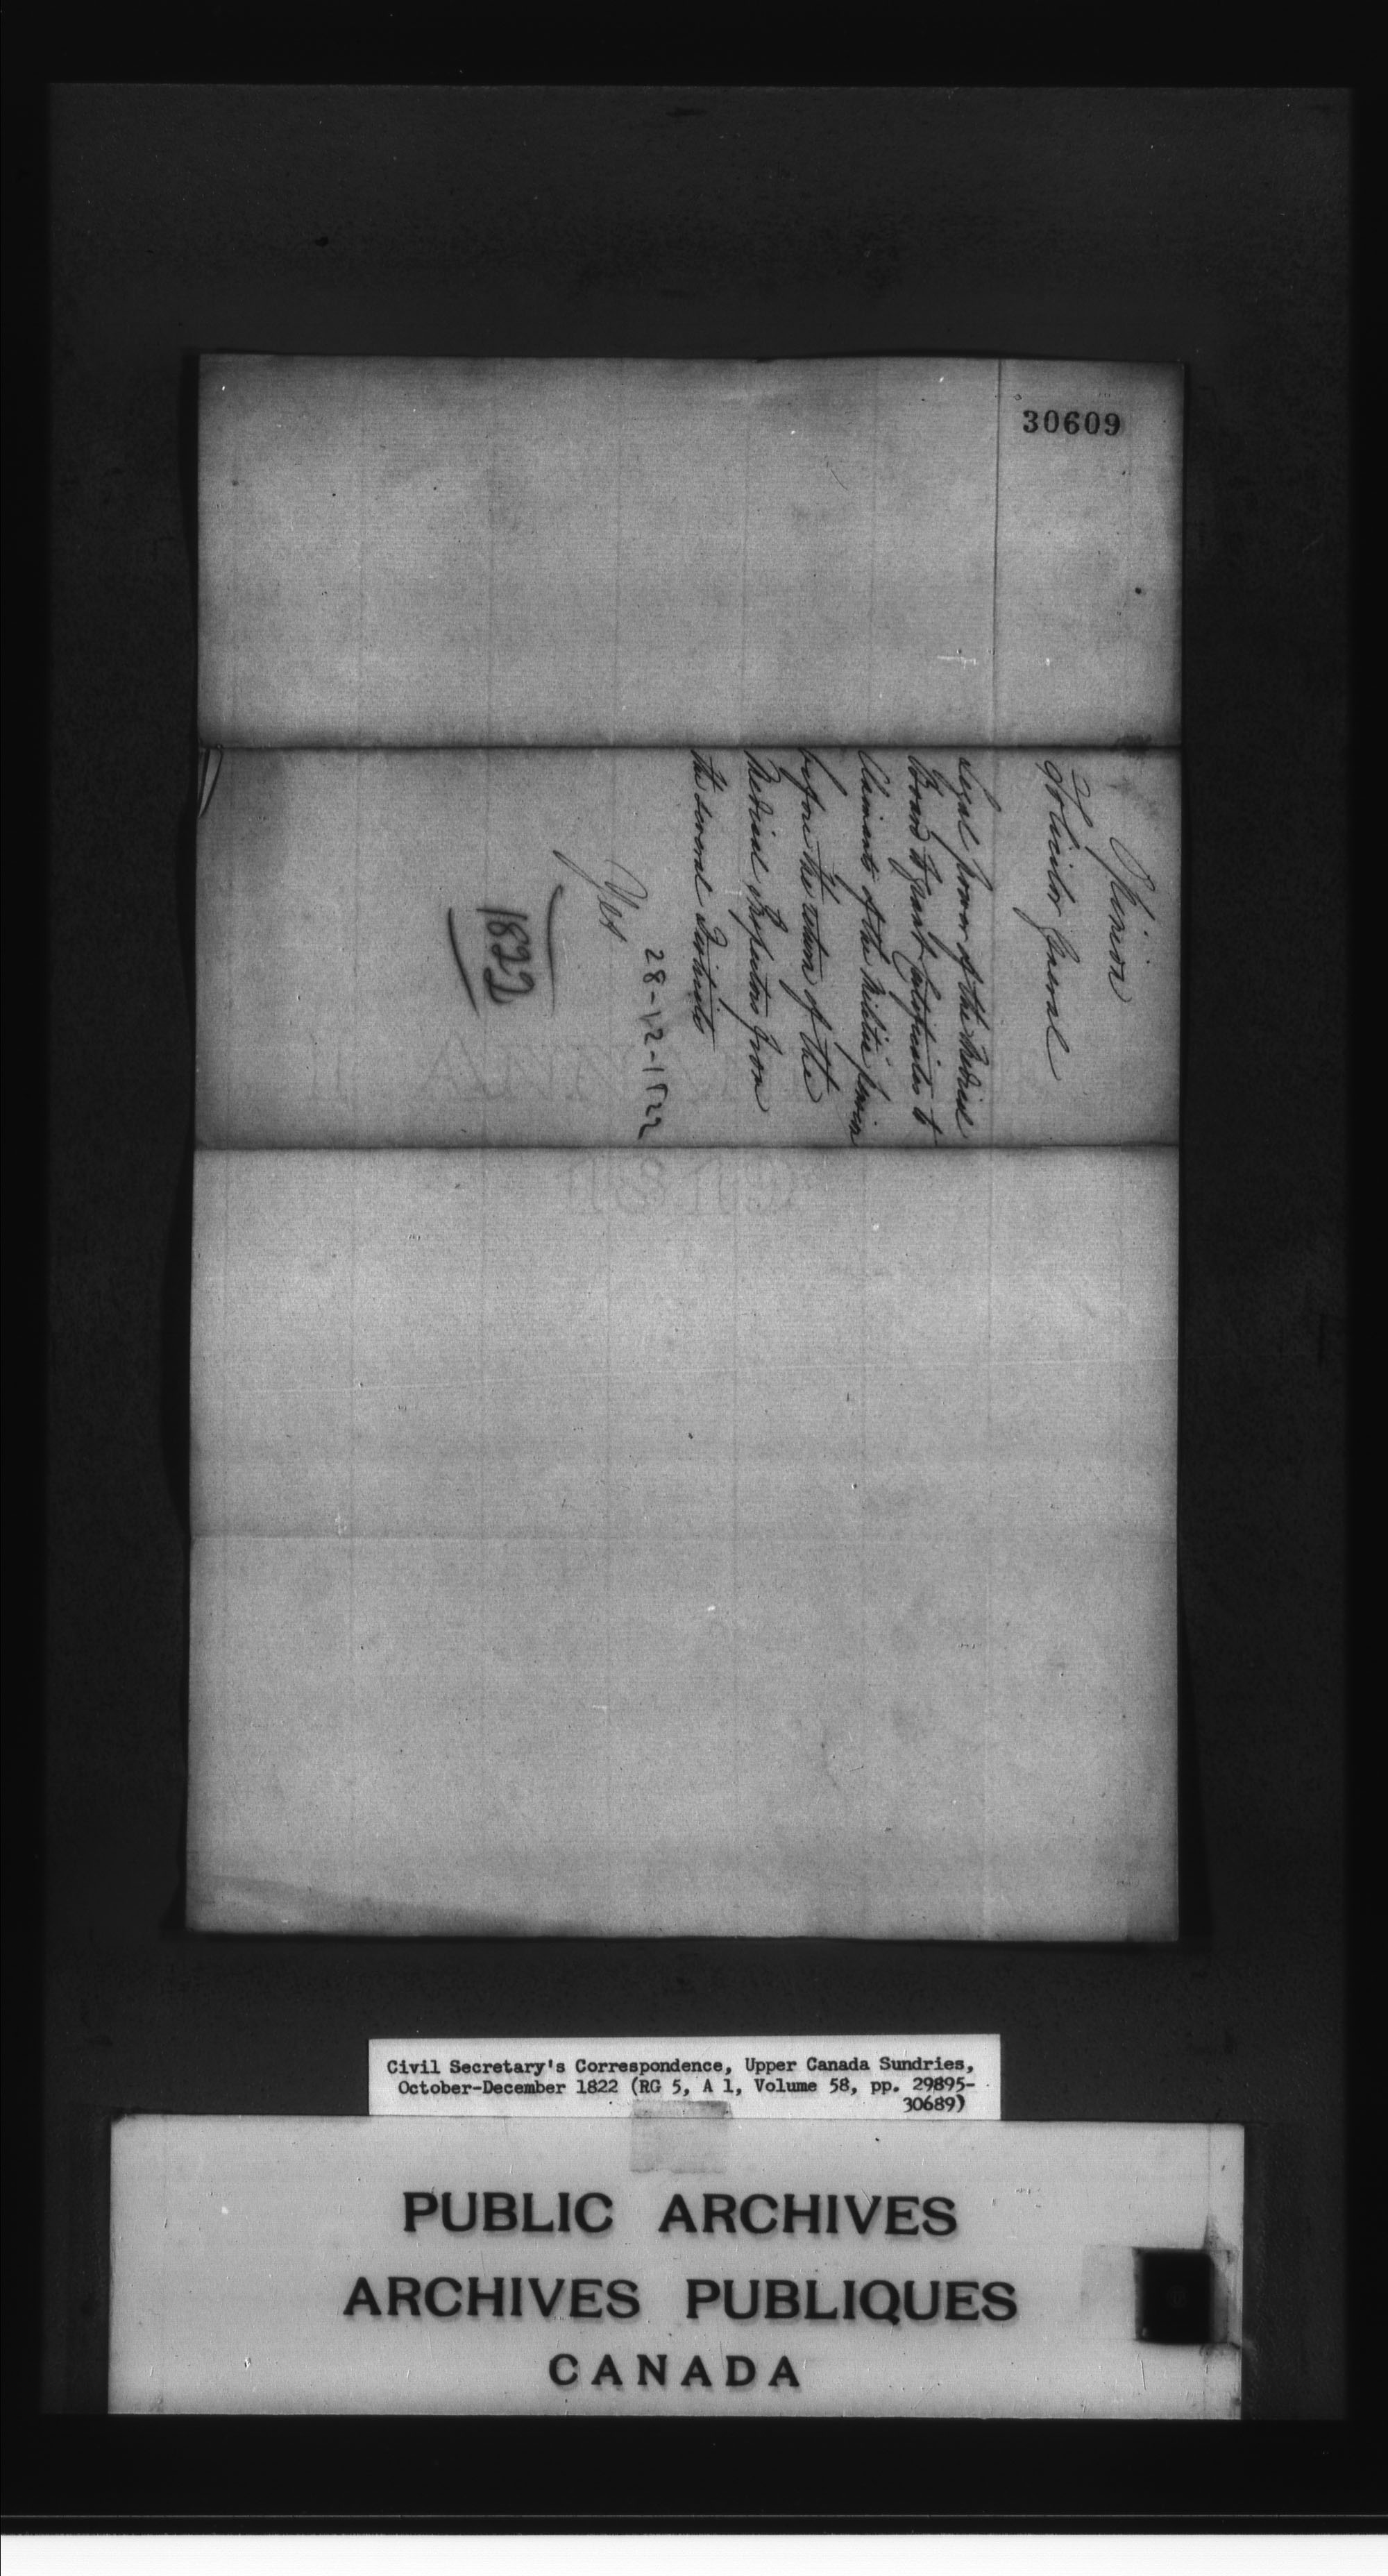 30609
Opinion
Solicitor General
Legal power of the Medical
Board to grant Certificates to
Claimants of the Militia pension
before the return of the
Medical Inspectors from
the several Districts
28-12-1822
Yes
1822
Civil Secretary's Correspondence, Upper Canada Sundries,
October-December 1822 (RG 5, A 1, Volume 58, pp. 29895-
30689)
PUBLIC ARCHIVES
ARCHIVES PUBLIQUES
CANADA